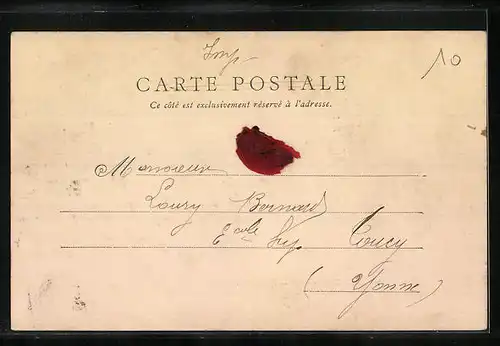 Imp
10
CARTE POSTALE
Ce côté est exclusivement réservé à l'adresse.
Monsieur
Loury Bernard
Ecole Sup Toucy
(Yonne)